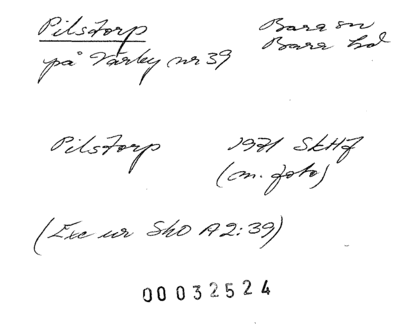 Pilstorp Bara sn
Bara hd
på Värby nr 39
Pilstorp 1971 SkHf
(m. foto)
(Exc ur SkO A2:39)
00032524